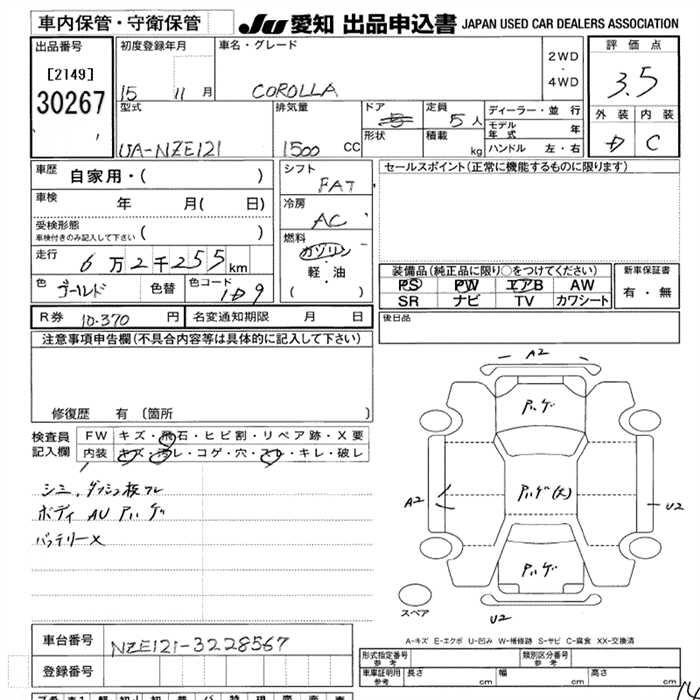 車内保管・守衛保管
JU 愛知 出品申込書 JAPAN USED CAR DEALERS ASSOCIATION
出品番号
[2149]
30267
初度登録年月
15 11 月
車名・グレード
COROLLA
2WD
・
4WD
評価点
3.5
外装 内装
D C
型式
UA-NZE121
排気量
1500 CC
ドア
5
形状
定員
5 人
積載
kg
ディーラー・並行
モデル年式 年
ハンドル 左・右
車歴 自家用・( )
車検 年 月( 日)
受検形態
車検付きのみ記入して下さい ( )
走行 6 万 2 千 255 km
色 ゴールド 色替 色コード 1D9
シフト
FAT
冷房
AC
燃料
ガソリン
軽・油
( )
セールスポイント(正常に機能するものに限ります)
装備品(純正品に限り○をつけてください)
PS PW エアB AW
SR ナビ TV カワシート
新車保証書
有・無
R券 10.370 円 名変通知期限 月 日
後日品
注意事項申告欄(不具合内容等は具体的に記入して下さい)
修復歴 有 (箇所 )
検査員
記入欄
FW キズ・飛石・ヒビ割・リペア跡・X要
内装 キズ・汚レ・コゲ・穴・スレ・キレ・破レ
シミ、ダッシュ板フレ
ボディ AU アルゲ
バッテリー×
A2
アルゲ
A2
アルゲ(X)
U2
アルゲ
スペア
U2
A-キズ E-エクボ U-凹み W-補修跡 S-サビ C-腐食 XX-交換済
車台番号 NZE121-3228567
登録番号
形式指定番号
参考
類別区分番号
参考
車庫証明用
参考
長さ cm 幅 cm 高さ cm